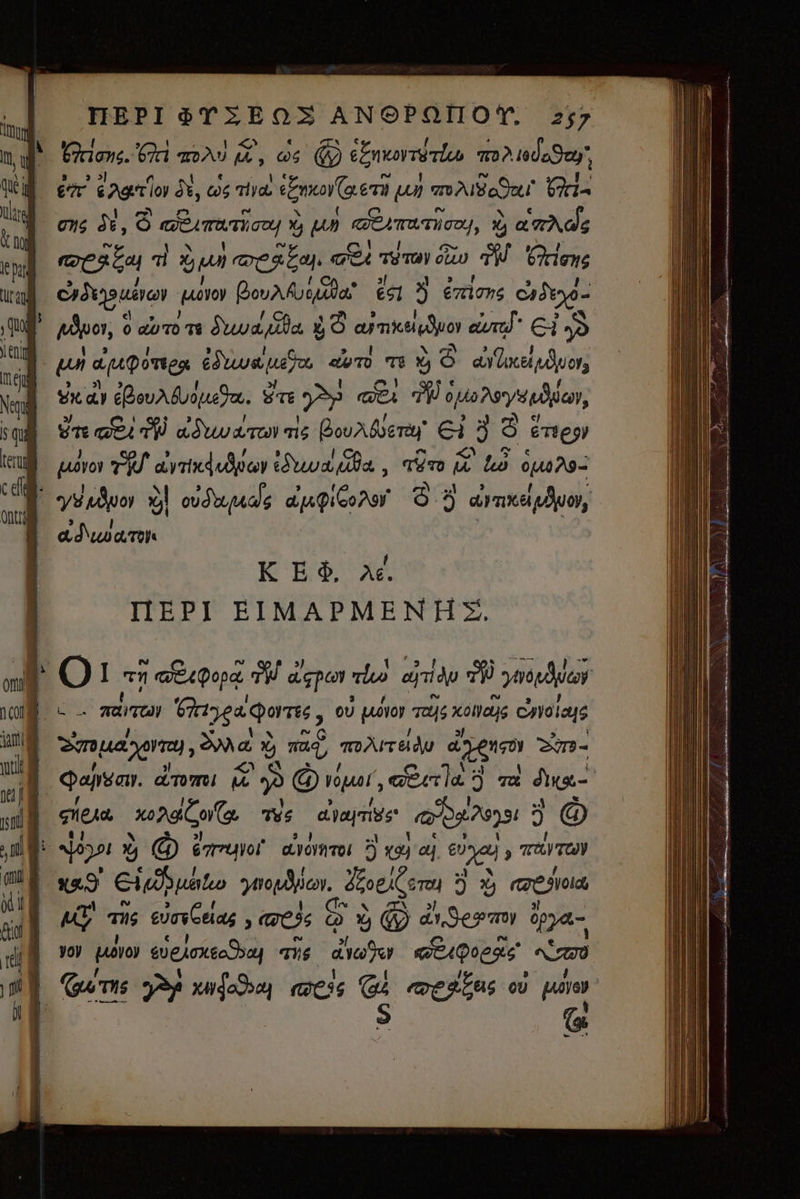 ΠΕΡΙ ΦΥΣΕΩΣ ΑΝΘΡΩΠΟΥ. 257
ἐπίσης. ἐπὶ πολὺ μὲν, ὡς τὸ ἑξηκοντούτην πολιοῦσθαι,
ἐπ᾽ ἔλαττον δὲ, ὡς τινὰ ἑξηκονταέτη μὴ πολιοῦσθαι· ἐπί-
σης δὲ, τὸ περιπατῆσαι καὶ μὴ περιπατῆσαι, καὶ ἁπλῶς
πρᾶξαί τι καὶ μὴ πρᾶξαι. περὶ τούτων οὖν τῶν ἐπίσης
ἐνδεχομένων μόνον βουλευόμεθα· ἔστι δὲ ἐπίσης ἐνδεχό-
μενον, ὃ αὐτό τε δυνάμεθα καὶ τὸ ἀντικείμενον αὐτοῦ· εἰ γὰρ
μὴ ἀμφότερα ἐδυνάμεθα, αὐτό τε καὶ τὸ ἀντικείμενον,
οὐκ ἂν ἐβουλευόμεθα. οὔτε γὰρ περὶ τῶν ὁμολογουμένων,
οὔτε περὶ τῶν ἀδυνάτων τὶς βουλεύεται· εἰ δὲ τὸ ἕτερον
μόνον τῶν ἀντικειμένων ἐδυνάμεθα, τοῦτο μὲν ἦν ὁμολο-
γούμενον καὶ οὐδαμῶς ἀμφίβολον· τὸ δὲ ἀντικείμενον,
ἀδύνατον.
ΚΕΦ. λέ.
ΠΕΡΙ ΕΙΜΑΡΜΕΝΗΣ.
ΟΙ τῇ περιφορᾷ τῶν ἄστρων τὴν αἰτίαν τῶν γινομένων
πάντων ἐπιγράφοντες, οὐ μόνον ταῖς κοιναῖς ἐννοίαις
ἀπομάχονται, ἀλλὰ καὶ πᾶσαν πολιτείαν ἄχρηστον ἀπο-
φαίνουσιν. ἄτοποι μὲν γὰρ οἱ νόμοι, περιττὰ δὲ τὰ δικα-
στήρια κολάζοντα τοὺς ἀναιτίους· παράλογοι δὲ οἱ
ψόγοι καὶ οἱ ἔπαινοι· ἀνόνητοι δὲ καὶ αἱ εὐχαὶ, πάντων
καθ᾽ εἱμαρμένην γινομένων. ἐξορίζεται δὲ καὶ πρόνοια
μετὰ τῆς εὐσεβείας, πρὸς τῷ καὶ τὸν ἄνθρωπον ὄργα-
νον μόνον εὑρίσκεσθαι τῆς ἄνωθεν περιφορᾶς· ὑπὸ
ταύτης γὰρ κινεῖσθαι πρὸς τὰς πράξεις οὐ μόνον
S τὰ